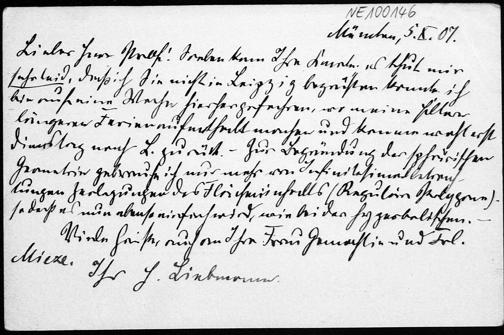 NE100146
München, 5. X. 07.
Lieber Herr Wolff! Soeben kam Ihre Karte. es thut mir
sehr leid, dass ich Sie nicht in Leipzig begrüssen konnte. ich
bin auf eine Woche hierher gefahren, wo meine Eltern
längeren Ferienaufenthalt machen und komme wohl erst
dienstag nach L. zurück. – Zur Begründung der sphärischen
Geometrie gebrauche ich nur mehr von Infinitesimalbetrach-
tungen Zerlegungen des Flächeninhalts (Reguläre Polygone).
sodass es nun ebenso einfach wird, wie bei der hyperbolischen. –
Viele Grüsse, auch an Ihre Frau Gemahlin und Frl.
Mieze. Ihr H. Liebmann.